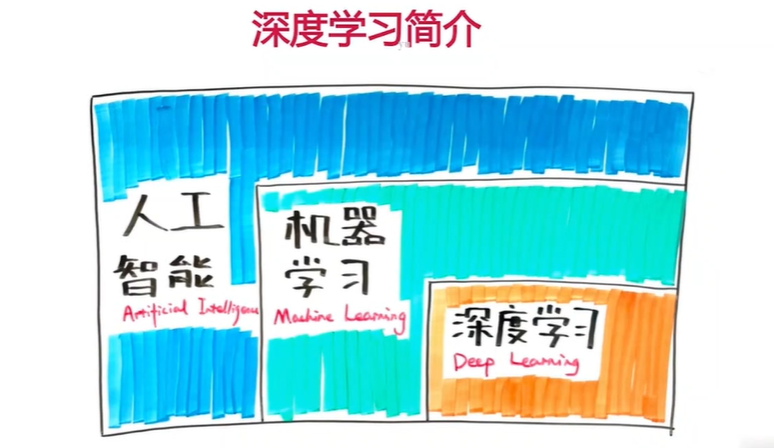 深度学习简介
人工
智能
Artificial Intelligence
机器
学习
Machine Learning
深度学习
Deep Learning